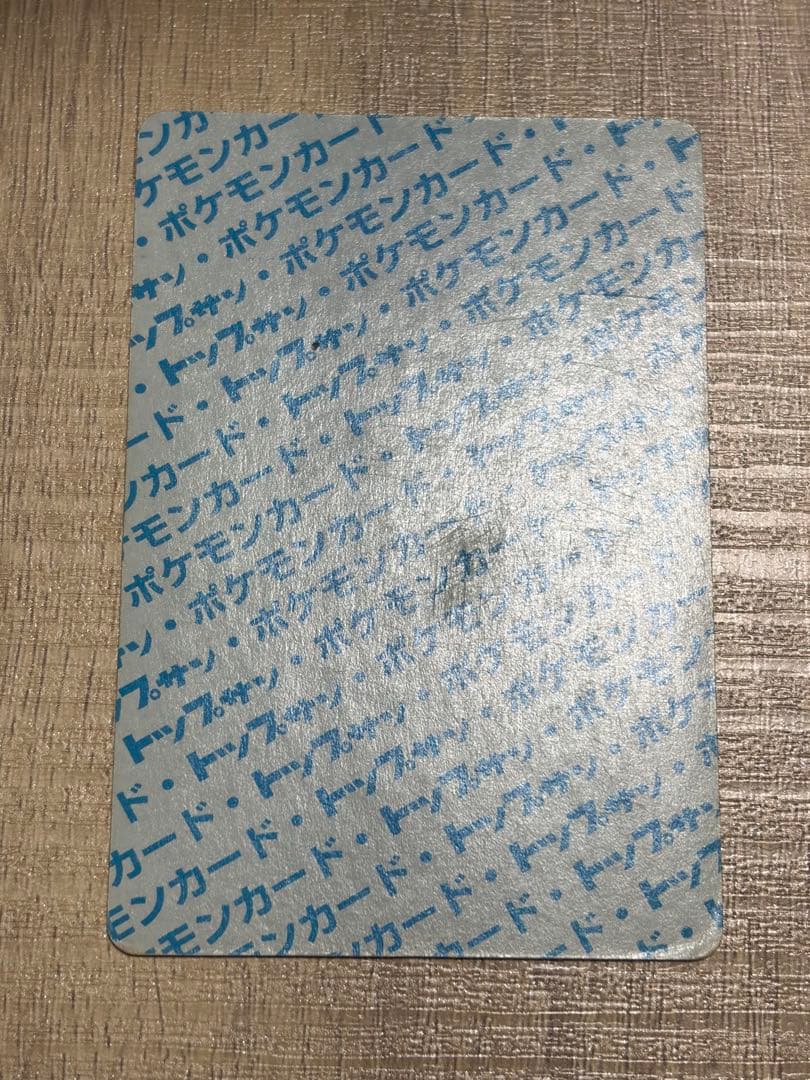 ンカ
ケモンカード
・ポケモンカード・
サン・ポケモンカード・ト
ップサン・ポケモンカード・ト
・トップサン・ポケモンカード
ード・トップサン・ポケモンカード
ンカード・トップサン・ポケモンカー
モンカード・トップサン・ポケモン
ポケモンカード・トップサン・ポケ
ン・ポケモンカード・トップサン・
プサン・ポケモンカード・トップサン
トップサン・ポケモンカード・
ド・トップサン・ポケモンカード
カード・トップサン・ポケモンカ
モンカード・トップサン・ポケモ
モンカード・トップサン・ポケ
ンカード・トップサン・ポ
カード・トップサン
ード・トップ
ド・ト